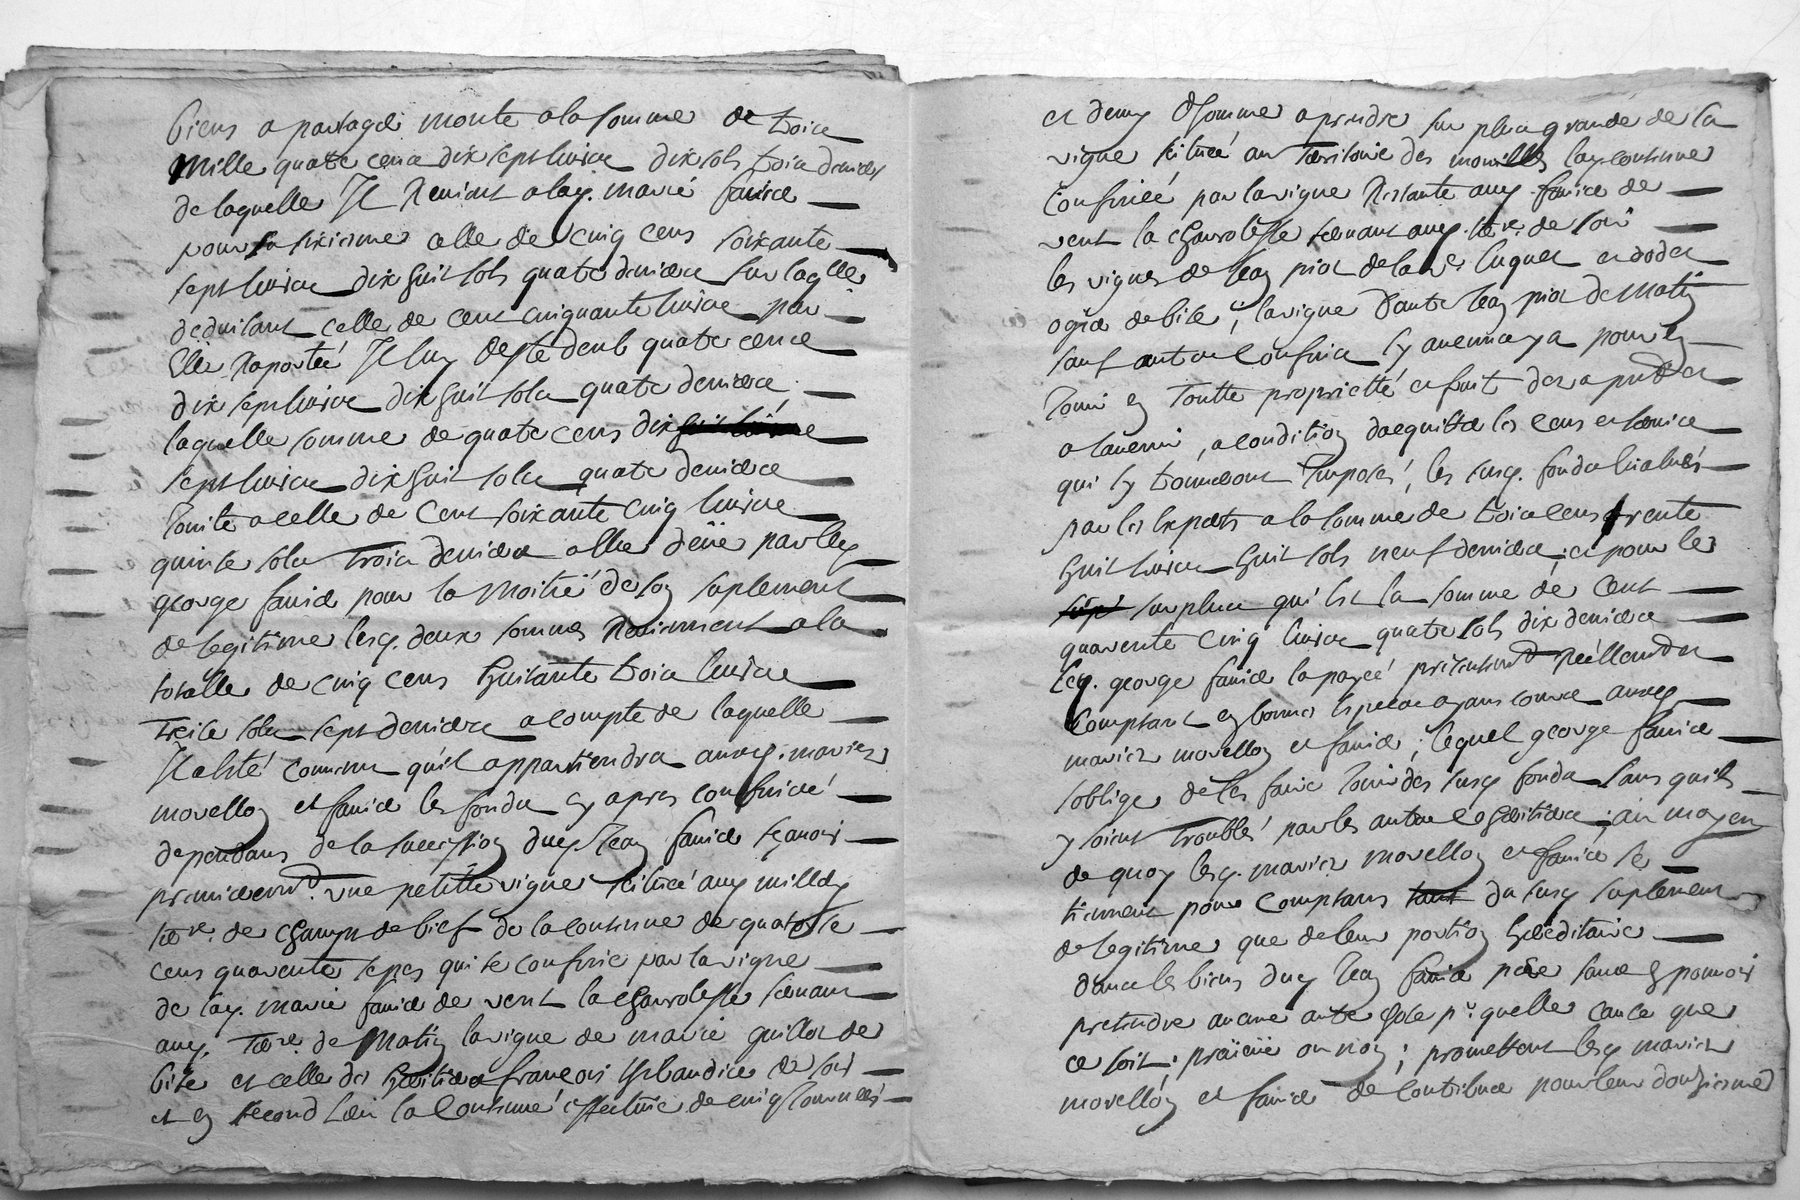 biens a partager monte a la somme de trois
mille quatre cens dix sept livres dix sols trois deniers
de laquelle Il Revient a lad. marie favier
pour sa sixieme celle de cinq cens soixante
sept livres dix huit sols quatre deniers sur laqlle
deduisant celle de cent cinquante livres par
Elle Raportée Il luy Reste deub quatre cens
dix sept livres dix huit sols quatre deniers
laquelle somme de quatre cens dix
sept livres dix huit sols quatre deniers
Jointe a celle de Cent soixante cinq livres
quinse sols trois deniers a elle düe par led
george favier pour la moitié de son suplement
de legitime lesq. deux sommes Reviennent a la
totalle de cinq cens huitante trois livres
treise sols sept deniers a compte de laquelle
Il a été convenu qu'il appartiendra auxq. mariés
morellon et favier les fonds cy apres confinés
dependans de la succession dud. Jean favier sçavoir
premierement une petitte vigne scituée aux milles
terre. de champs de bief de la contenue de quatorse
cens quarente seps qui se confine par la vigne
de lad. marie favier de vent la charolesse tenant
aud. terre. de Matin la vigne de marie guillot de
bise et celle des heritiers francois de soir
et en second lieu la Contenue effective de cinq Journées
et demy d'homme a prendre sur plus grande de la
vigne scituée au territoire des mouilles lad. contenue
Confinée par la vigne Restante aud. favier de
vent la charolesse tenant aud. terre. de soir
les vignes de Jean piot de la Ve. luquet et
de bise, la vigne d'autre Jean piot de Matin
sauf autres Confins sy aucuns y a pour en
Jouir en toutte proprietté et fruit des a present et
a l'avenir, a condition d'acquitter les cens et servis
qui s'y trouveront Imposés, les susd. fonds évalués
par les Experts a la somme de trois cens trente
huit livres huit sols neuf deniers; et pour le
surplus qui est la somme de Cent
quarente cinq livres quatre sols dix deniers
Led. george favier la payée presentement Réellement et
Comptant en bonnes especes ayans cours auxd
mariés morellon et favier; lequel george favier
s'oblige de les faire Jouir des susd fonds sans quils
y soient troublés par les autres coheritiers; au moyen
de quoy lesd. mariés morellon et favier se
tiennent pour comptans tant du susd suplement
de legitime que de leur portion hereditaire
dans les biens dud Jean favier père sans en pouvoir
pretendre aucune autre chose pr. quelle cause que
ce soit; preveüe ou non; promettent lesd mariés
morellon et favier de contribuer pour leur douzieme